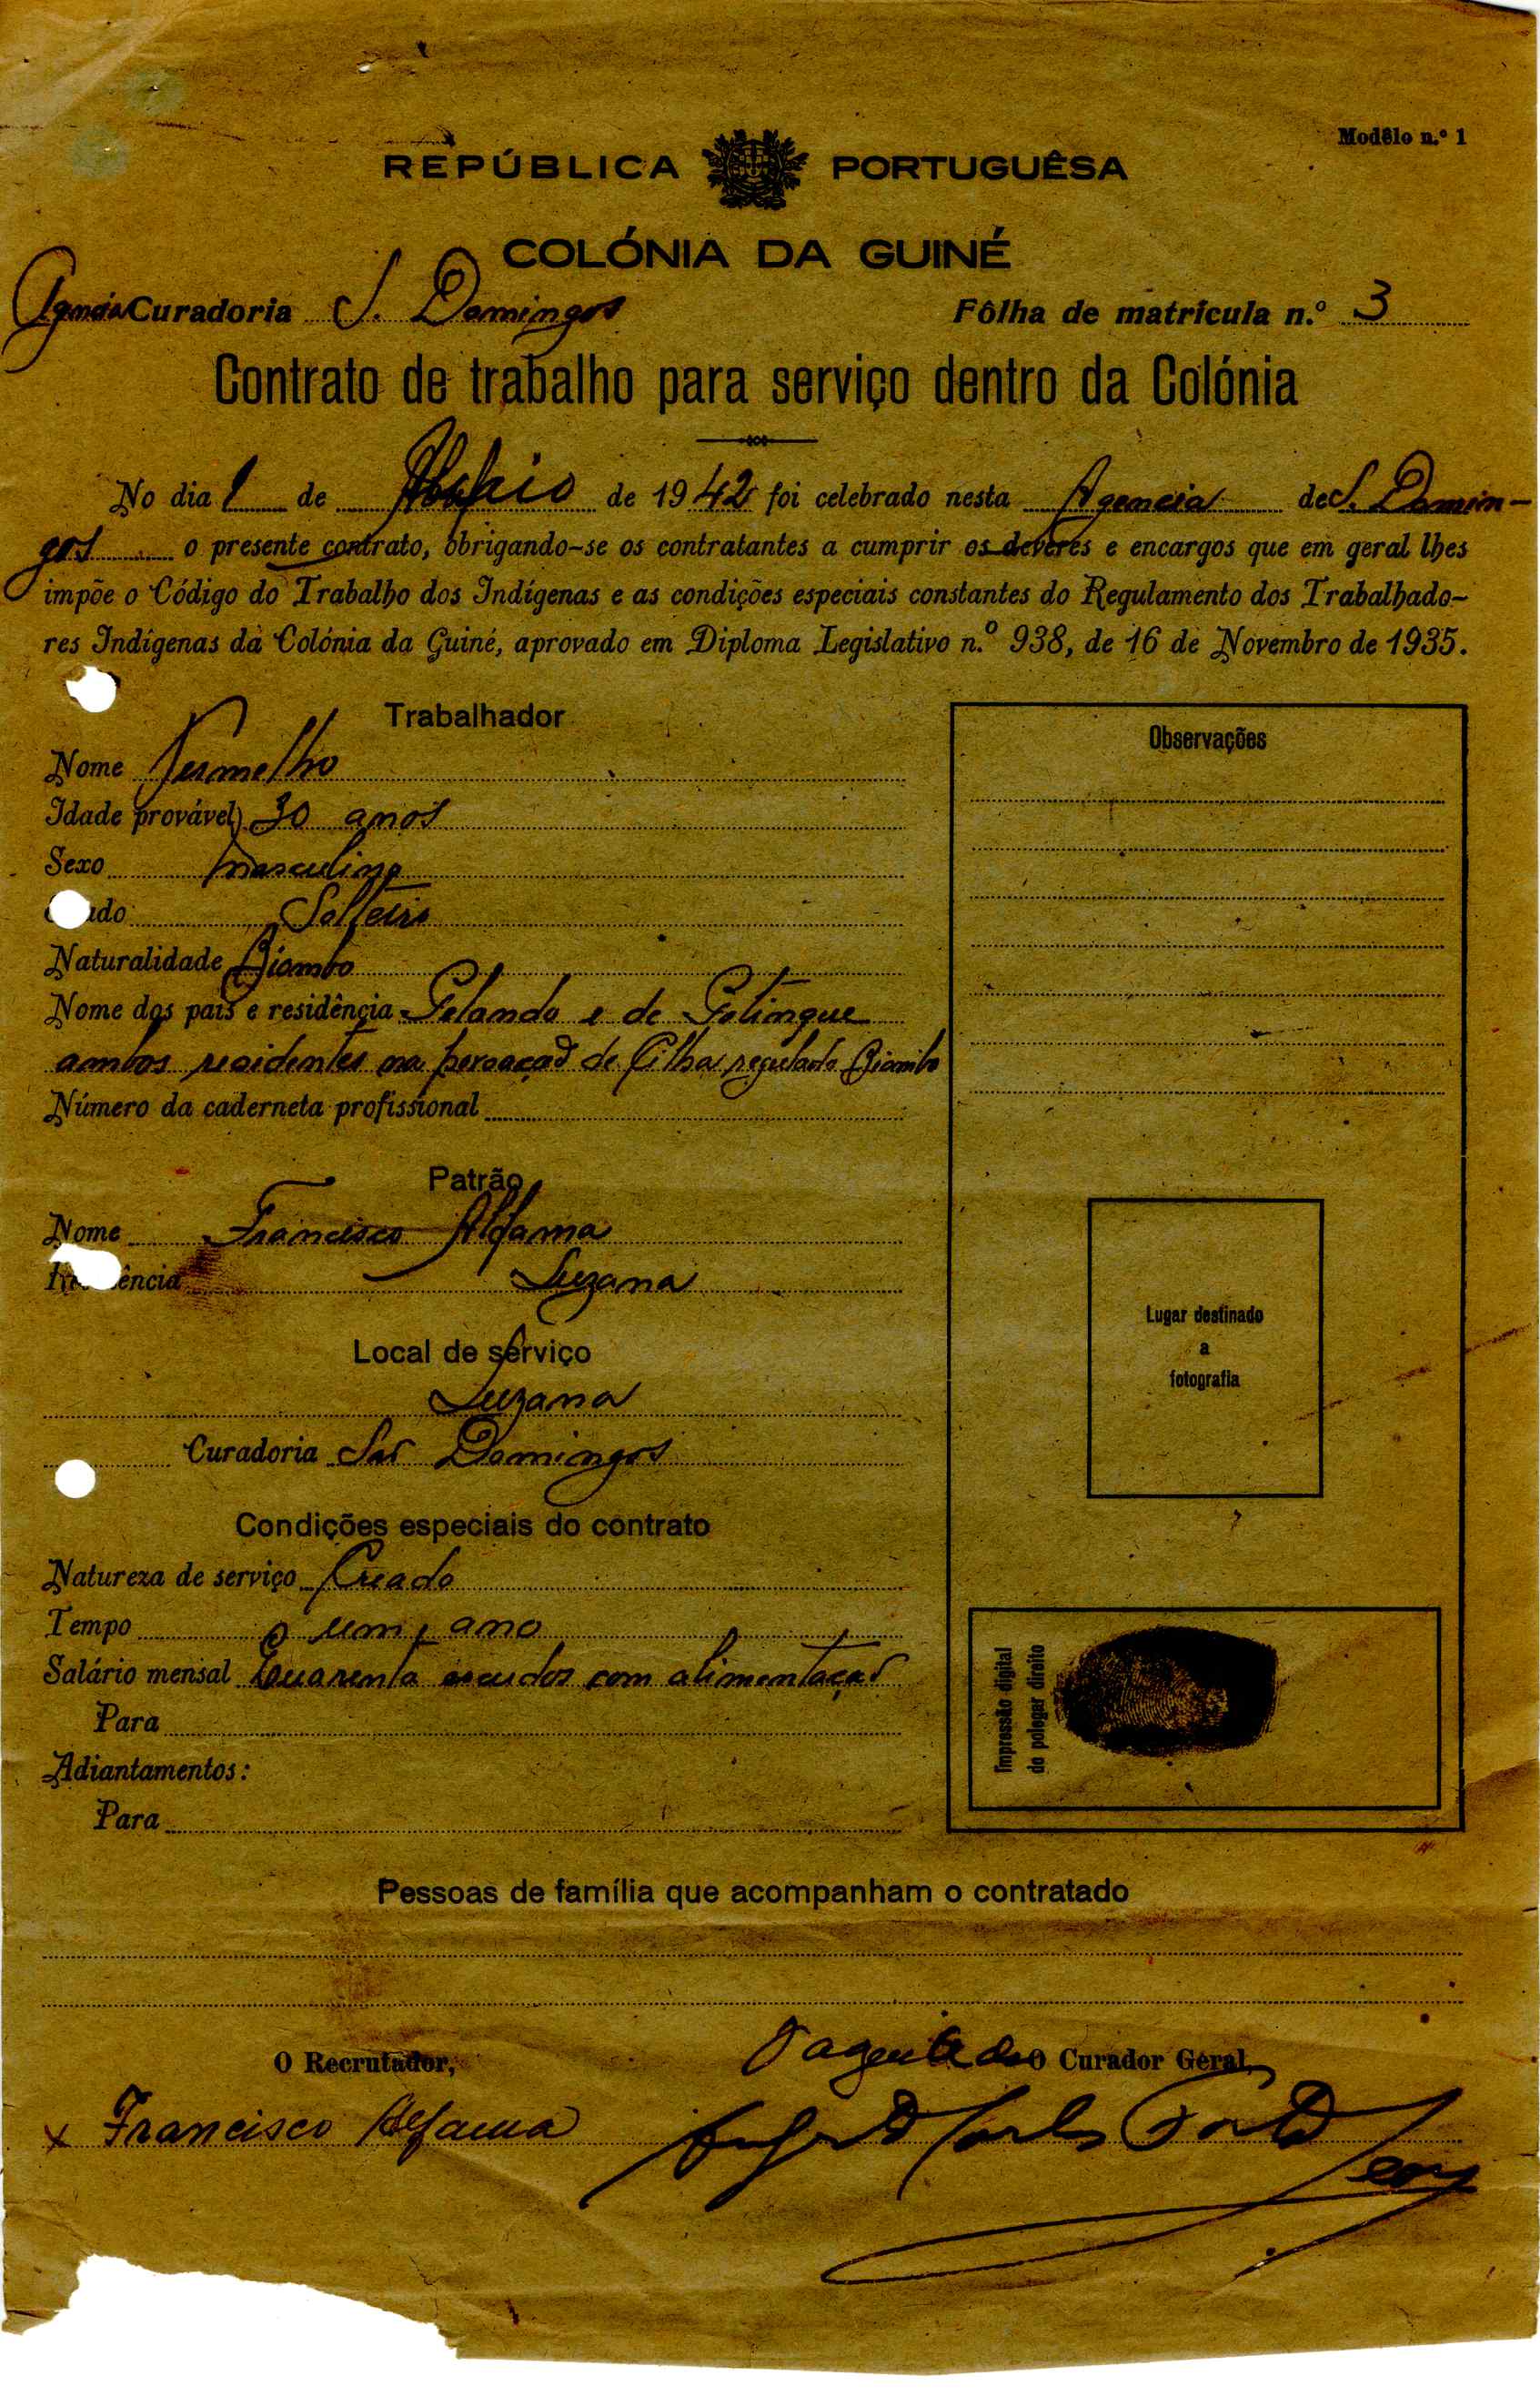 Modêlo n.º 1
REPÚBLICA PORTUGUÊSA
COLÓNIA DA GUINÉ
Agencia Curadoria S. Domingos Fôlha de matrícula n.º 3
Contrato de trabalho para serviço dentro da Colónia
No dia 1 de Maio de 1942 foi celebrado nesta Agencia de S. Domin-
gos o presente contrato, obrigando-se os contratantes a cumprir os deveres e encargos que em geral lhes
impõe o Código do Trabalho dos Indígenas e as condições especiais constantes do Regulamento dos Trabalhado-
res Indígenas da Colónia da Guiné, aprovado em Diploma Legislativo n.º 938, de 16 de Novembro de 1935.
Trabalhador
Nome Vermelho
Idade (provável) 30 anos
Sexo masculino
Solteiro
Naturalidade Biombo
Nome dos pais e residência e de
ambos residentes na povoação de regulado Biombo
Número da caderneta profissional
Patrão
Nome Francisco Alfama
Residência Suzana
Local de serviço
Suzana
Curadoria São Domingos
Condições especiais do contrato
Natureza de serviço Creado
Tempo um ano
Salário mensal Quarenta escudos com alimentação
Para
Adiantamentos:
Para
Observações
Lugar destinado
a
fotografia
Impressão digital
do polegar direito
Pessoas de família que acompanham o contratado
O Recrutador, O agente do O Curador Geral,
x Francisco Alfama